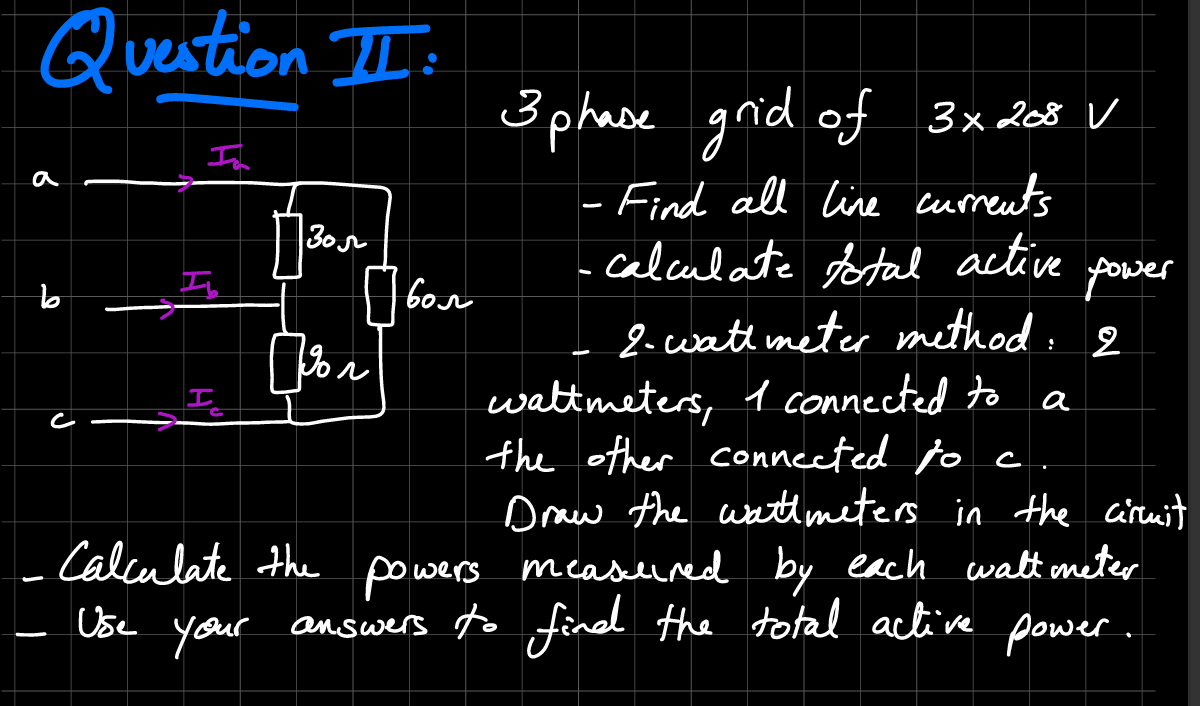 Question II:
3 phase grid of 3 x 208 V
a Ia
- Find all line currents
30Ω
- calculate total active power
b Ib
60Ω
- 2-wattmeter method: 2
90Ω
wattmeters, 1 connected to a
c Ic
the other connected to c.
Draw the wattmeters in the circuit
- Calculate the powers measured by each wattmeter
- Use your answers to find the total active power.